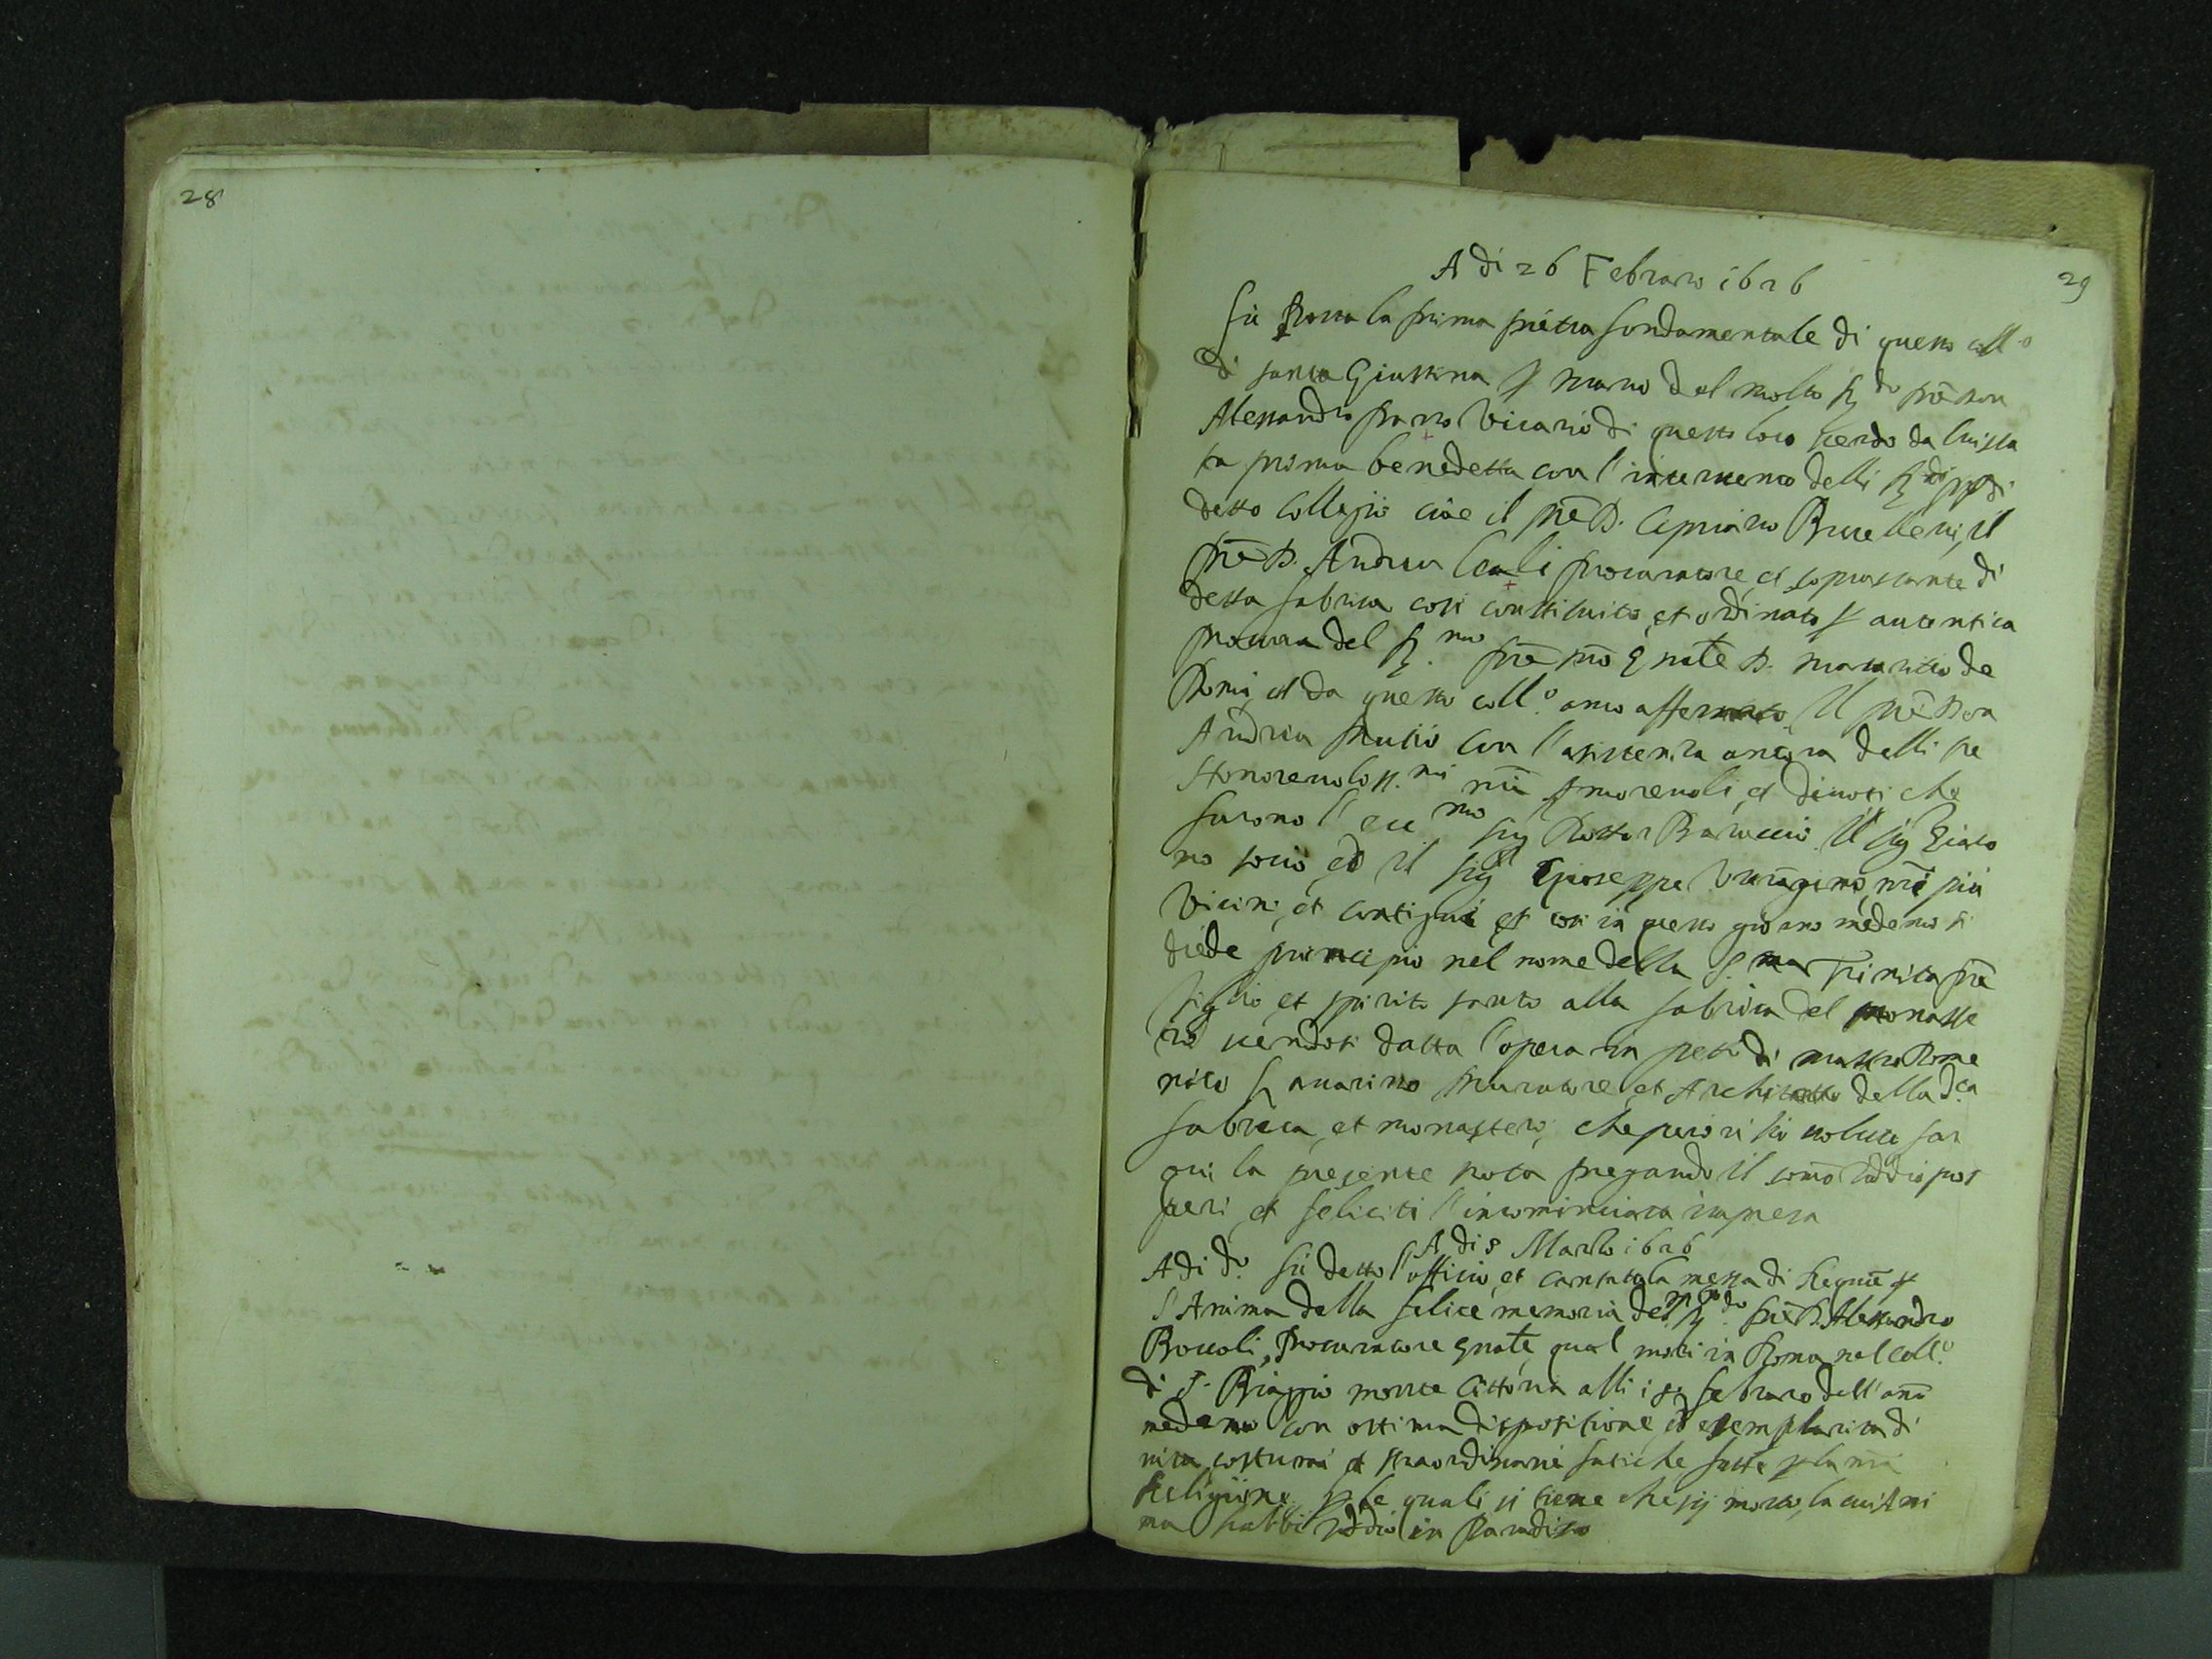 28
29
A di 26 Febraro 1626
Fù posta la prima pietra fondamentale di questo coll.o
di santa Giustina p mano del molto R.do prē Don
Alessandro Vicario di questo loco sendo da lui sta
ta prima benedetta con l'intervento delli R.di ppri di
detto Collegio cioe il prē D. Cipriano il
prē D. Andrea procuratore, et soprastante di
detta fabrica cosi constituito, et ordinato p autentica
procura del R.mo prē nrō Gnāle D. Mauritio de
et da questo coll.o anco affermato, Il prē Don
Andrea Mutio con l'assistenza ancora delli
Honorevoliss.mi nrī Amorevoli, et divoti che
furono l'ecc.mo sig Dottor Il sig Giaco
mo socio, ed il sig Gioseppe nrī più
Vicini, et contigui et cosi in questo giorno medemo si
diede principio nel nome della S.ma Trinita prē
figlio et spirito santo alla fabrica del monaste
rio sendosi datta l'opera in petto di mastro Dome
nico muratore, et Architetto della d.a
fabrica, et monastero, che perciò si è voluto far
qui la presente nota pregando il somō Iddio pros
peri, et feliciti l'incominciata impresa
A di 8 Marzo 1626
A di d.o fù detto l'officio, et cantata la messa di Requiē p
l'Anima della felice memoria del m R.do prē D. Alessandro
Boccoli, Procuratore Gnāle, qual morì in Roma nel coll.o
di S. Biaggio monte Cittorio alli febraro dell'anō
medemo con ottima dispositione, et esemplarita di
vita, costumi et straordinarie fatiche fatte p la nrā
Religione, p le quali si tiene che sij morto, la cui Ani
ma habbi Iddio in Paradiso